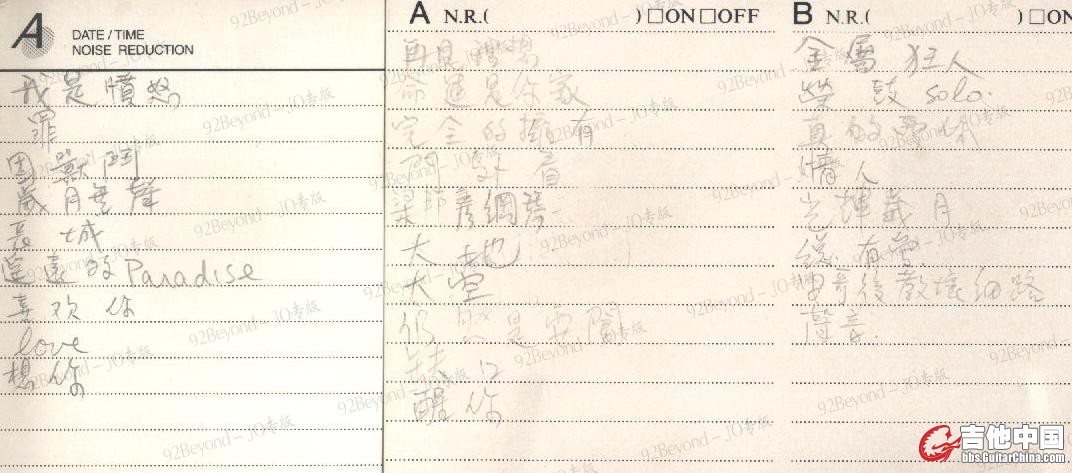 A
DATE/TIME
NOISE REDUCTION
我是憤怒
罪
困獸鬥
歲月無聲
長城
遙遠的Paradise
喜欢你
love
想你
A N.R.( ) □ON□OFF
再見理想
命運是你家
完全的擁有
大地
灰
仍然是要闖
缺口
醒你
B N.R.( ) □ON
金屬狂人
solo.
真的愛你
情人
光輝歲月
還有
俾音後教壞細路
聲音.
92Beyond – JO专版
吉他中国
bbs.GuitarChina.com